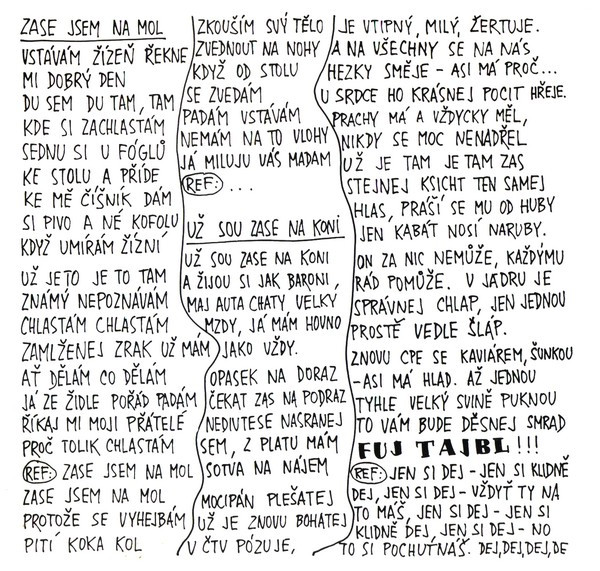 ZASE JSEM NA MOL
VSTÁVÁM ŽÍZEŇ ŘEKNE
MI DOBRÝ DEN
DU SEM DU TAM, TAM
KDE SI ZACHLASTÁM
SEDNU SI U FÓGLŮ
KE STOLU A PŘÍDE
KE MĚ ČÍŠNÍK DÁM
SI PIVO A NÉ KOFOLU
KDYŽ UMÍRÁM ŽÍZNÍ
UŽ JE TO JE TO TAM
ZNÁMÝ NEPOZNÁVÁM
CHLASTÁM CHLASTÁM
ZAMLŽENEJ ZRAK UŽ MÁM
AŤ DĚLÁM CO DĚLÁM
JÁ ZE ŽIDLE POŘÁD PADÁM
ŘÍKAJ MI MOJI PŘÁTELÉ
PROČ TOLIK CHLASTÁM
REF: ZASE JSEM NA MOL
ZASE JSEM NA MOL
PROTOŽE SE VYHEJBÁM
PITÍ KOKA KOL
ZKOUŠÍM SVÝ TĚLO
ZVEDNOUT NA NOHY
KDYŽ OD STOLU
SE ZVEDÁM
PADÁM VSTÁVÁM
NEMÁM NA TO VLOHY
JÁ MILUJU VÁS MADAM
REF: ...
UŽ SOU ZASE NA KONI
UŽ SOU ZASE NA KONI
A ŽIJOU SI JAK BARONI,
MAJ AUTA CHATY VELKY
MZDY, JÁ MÁM HOVNO
JAKO VŽDY.
OPASEK NA DORAZ
ČEKAT ZAS NA PODRAZ
NEDIVTE SE NASRANEJ
SEM, Z PLATU MÁM
SOTVA NA NÁJEM
MOCIPÁN PLEŠATEJ
UŽ JE ZNOVU BOHATEJ
V ČTV PÓZUJE,
JE VTIPNÝ, MILÝ, ŽERTUJE.
A NA VŠECHNY SE NA NÁS
HEZKY SMĚJE - ASI MÁ PROČ...
U SRDCE HO KRÁSNEJ POCIT HŘEJE.
PRACHY MÁ A VŽDYCKY MĚL,
NIKDY SE MOC NENADŘEL
UŽ JE TAM JE TAM ZAS
STEJNEJ KSICHT TEN SAMEJ
HLAS, PRÁŠÍ SE MU OD HUBY
JEN KABÁT NOSÍ NARUBY.
ON ZA NIC NEMŮŽE, KAŽDÝMU
RÁD POMŮŽE. V JÁDRU JE
SPRÁVNEJ CHLAP, JEN JEDNOU
PROSTĚ VEDLE ŠLÁP.
ZNOVU CPE SE KAVIÁREM, ŠUNKOU
-ASI MÁ HLAD. AŽ JEDNOU
TYHLE VELKÝ SVINĚ PUKNOU
TO VÁM BUDE DĚSNEJ SMRAD
FUJ TAJBL!!!
REF: JEN SI DEJ - JEN SI KLIDNĚ
DEJ, JEN SI DEJ - VŽDYŤ TY NA
TO MÁŠ, JEN SI DEJ - JEN SI
KLIDNĚ DEJ, JEN SI DEJ - NO
TO SI POCHUTNÁŠ. DEJ, DEJ, DEJ, DE